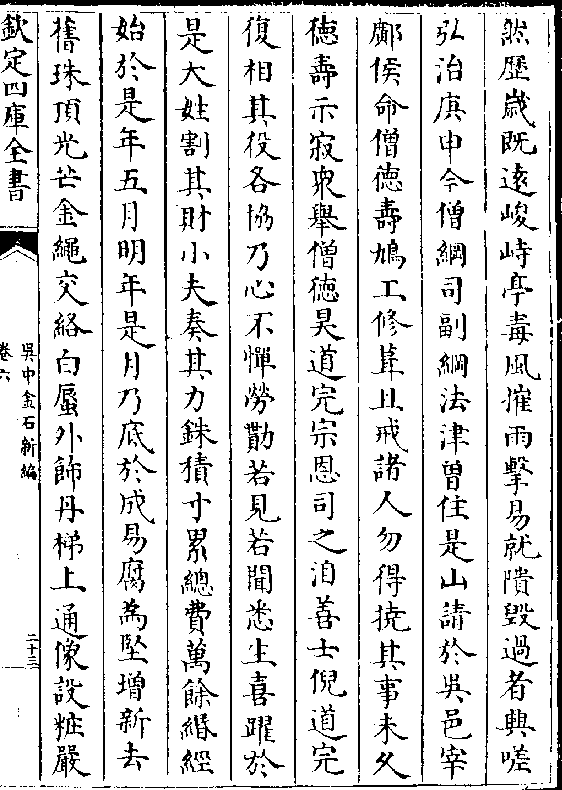 然歴歲既逺峻峙亭毒風摧雨擊易就隤毁過者興嗟
弘治庚申今僧綱司副綱法津曽住是山請於吳邑宰
鄺侯命僧徳壽鳩工修葺且戒諸人勿得撓其事未久
徳壽示寂衆舉僧徳昊道完宗恩司之洎善士倪道完
復相其役各協乃心不憚勞勩若見若聞悉生喜躍於
是大姓割其財小夫奏其力銖積寸累總費萬餘緡經
始於是年五月明年是月乃底於成易腐為堅増新去
舊珠頂光芒金繩交絡白蜃外飾丹梯上通像設粧嚴
欽定四庫全書
吳中金石新編
卷六
二十三